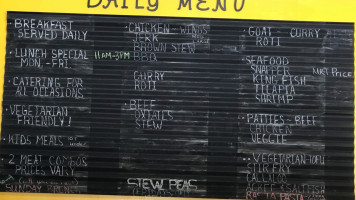 DAILY MENU
• BREAKFAST
SERVED DAILY
• LUNCH SPECIAL 11AM-3PM
MON-FRI
• CATERING FOR
ALL OCCASIONS
• VEGETARIAN
FRIENDLY!
• KIDS MEALS
• 2 MEAT COMBOS
PRICES VARY
SUNDAY
• CHICKEN-WINGS
JERK
BROWN STEW
BBQ
CURRY
ROTI
• BEEF
OXTAILS
STEW
STEW PEAS
• GOAT CURRY
ROTI
• SEAFOOD
SNAPPER MKT PRICE
KING FISH
TILAPIA
SHRIMP
• PATTIES-BEEF
CHICKEN
VEGGIE
• VEGETARIAN-TOFU
STIR FRY
ACKEE & SALTFISH
RASTA PASTA